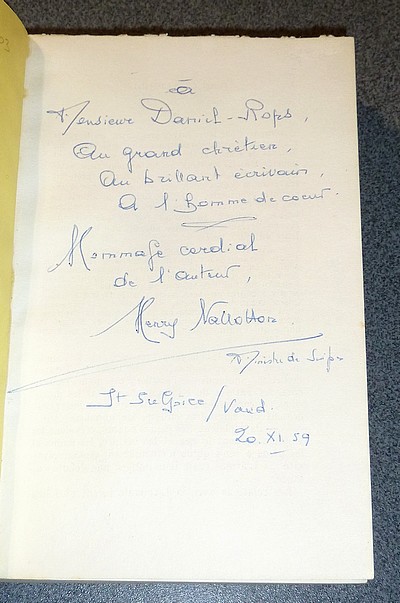 à
Monsieur Daniel-Rops,
Au grand chrétien,
Au brillant écrivain,
A l'homme de cœur.
Hommage cordial
de l'auteur,
Henry Vallotton.
Ministre de Suisse
St Sulpice/Vaud.
20.XI.59